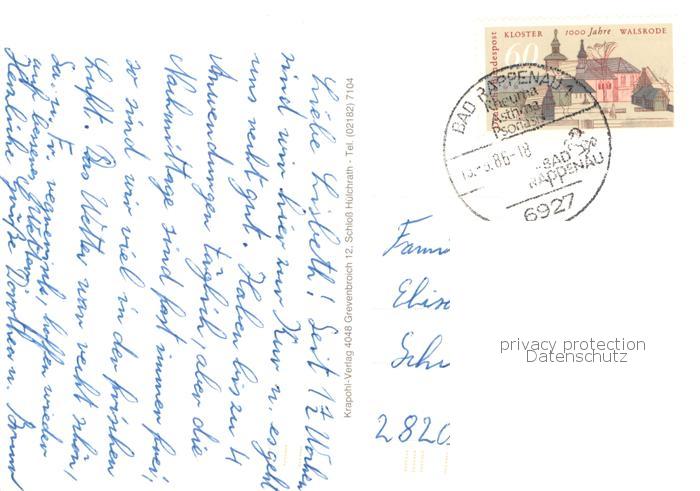 Liebe Lisbeth! Seit 1½ Wochen
sind wir hier zur Kur u. es geht
uns recht gut. Haben bis zu 4
Anwendungen täglich, aber die
Nachmittage sind fast immer frei,
so sind wir viel in der frischen
Luft. Das Wetter war recht schön,
Sa. u. Fr. verregnet, hoffen wieder
auf besseres Wetter.
Herzliche Grüße Dorothea u.
Krapohl-Verlag 4048 Grevenbroich 12, Schloß Hülchrath - Tel. (02182) 7104
KLOSTER 1000 Jahre WALSRODE
60
BAD RAPPENAU 1
Rheuma
Asthma
Psoriasis
.86-18
BAD
RAPPENAU
6927
Fami
2820
privacy protection
Datenschutz